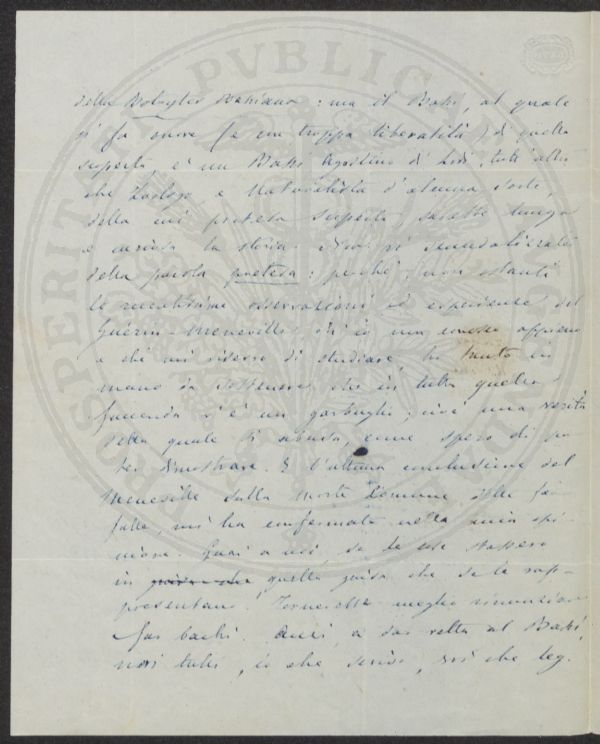 della Botrytis Bassiana : ma il Bassi, al quale
si fa onore (e con troppa liberalità) di quella
scoperta è un Bassi Agostino di Lodi, tutt'altro
che Zoologo, e Naturalista d'alcuna sorte,
della cui pretesa scoperta, sarebbe lunga
e curiosa la storia. Non si scandalizzate
della parola pretesa : perchè, non ostanti
le recentissime osservazioni ed esperienze del
Guérin-Meneville, ch'io non conosco appieno
e che mi riservo di studiare, ho tanto in
mano da sostenere che in tutta quella
faccenda vi è un garbuglio ; cioè una verità
della quale si abusa, come spero di po-
ter dimostrare. E l'ultima conclusione del
Meneville sulla morte comune delle far-
falle, mi ha confermato nella mia opi-
nione. Guai a noi se le cose stassero
in quella guisa che se le rap-
presentano! Tornerebbe meglio rinunziare
bachi. Anzi, a dar retta al Bassi,
noi tutti, io che scrivo, voi che leg-